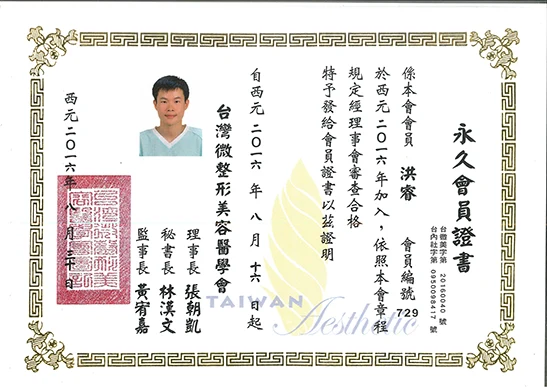 永久會員證書
台微美字第 20160040 號
台內社字第 0950098417 號
係本會會員 洪睿 會員編號 729
於西元二O一六年加入，依照本會章程
規定經理事會審查合格
特予發給會員證書以茲證明
自西元 二O一六 年 八 月 十六 日起
台灣微整形美容醫學會
理事長 張朝凱
秘書長 林漢文
監事長 黃宥嘉
西元 二O一六年 八 月 三十 日
TAIWAN
Aesthetic